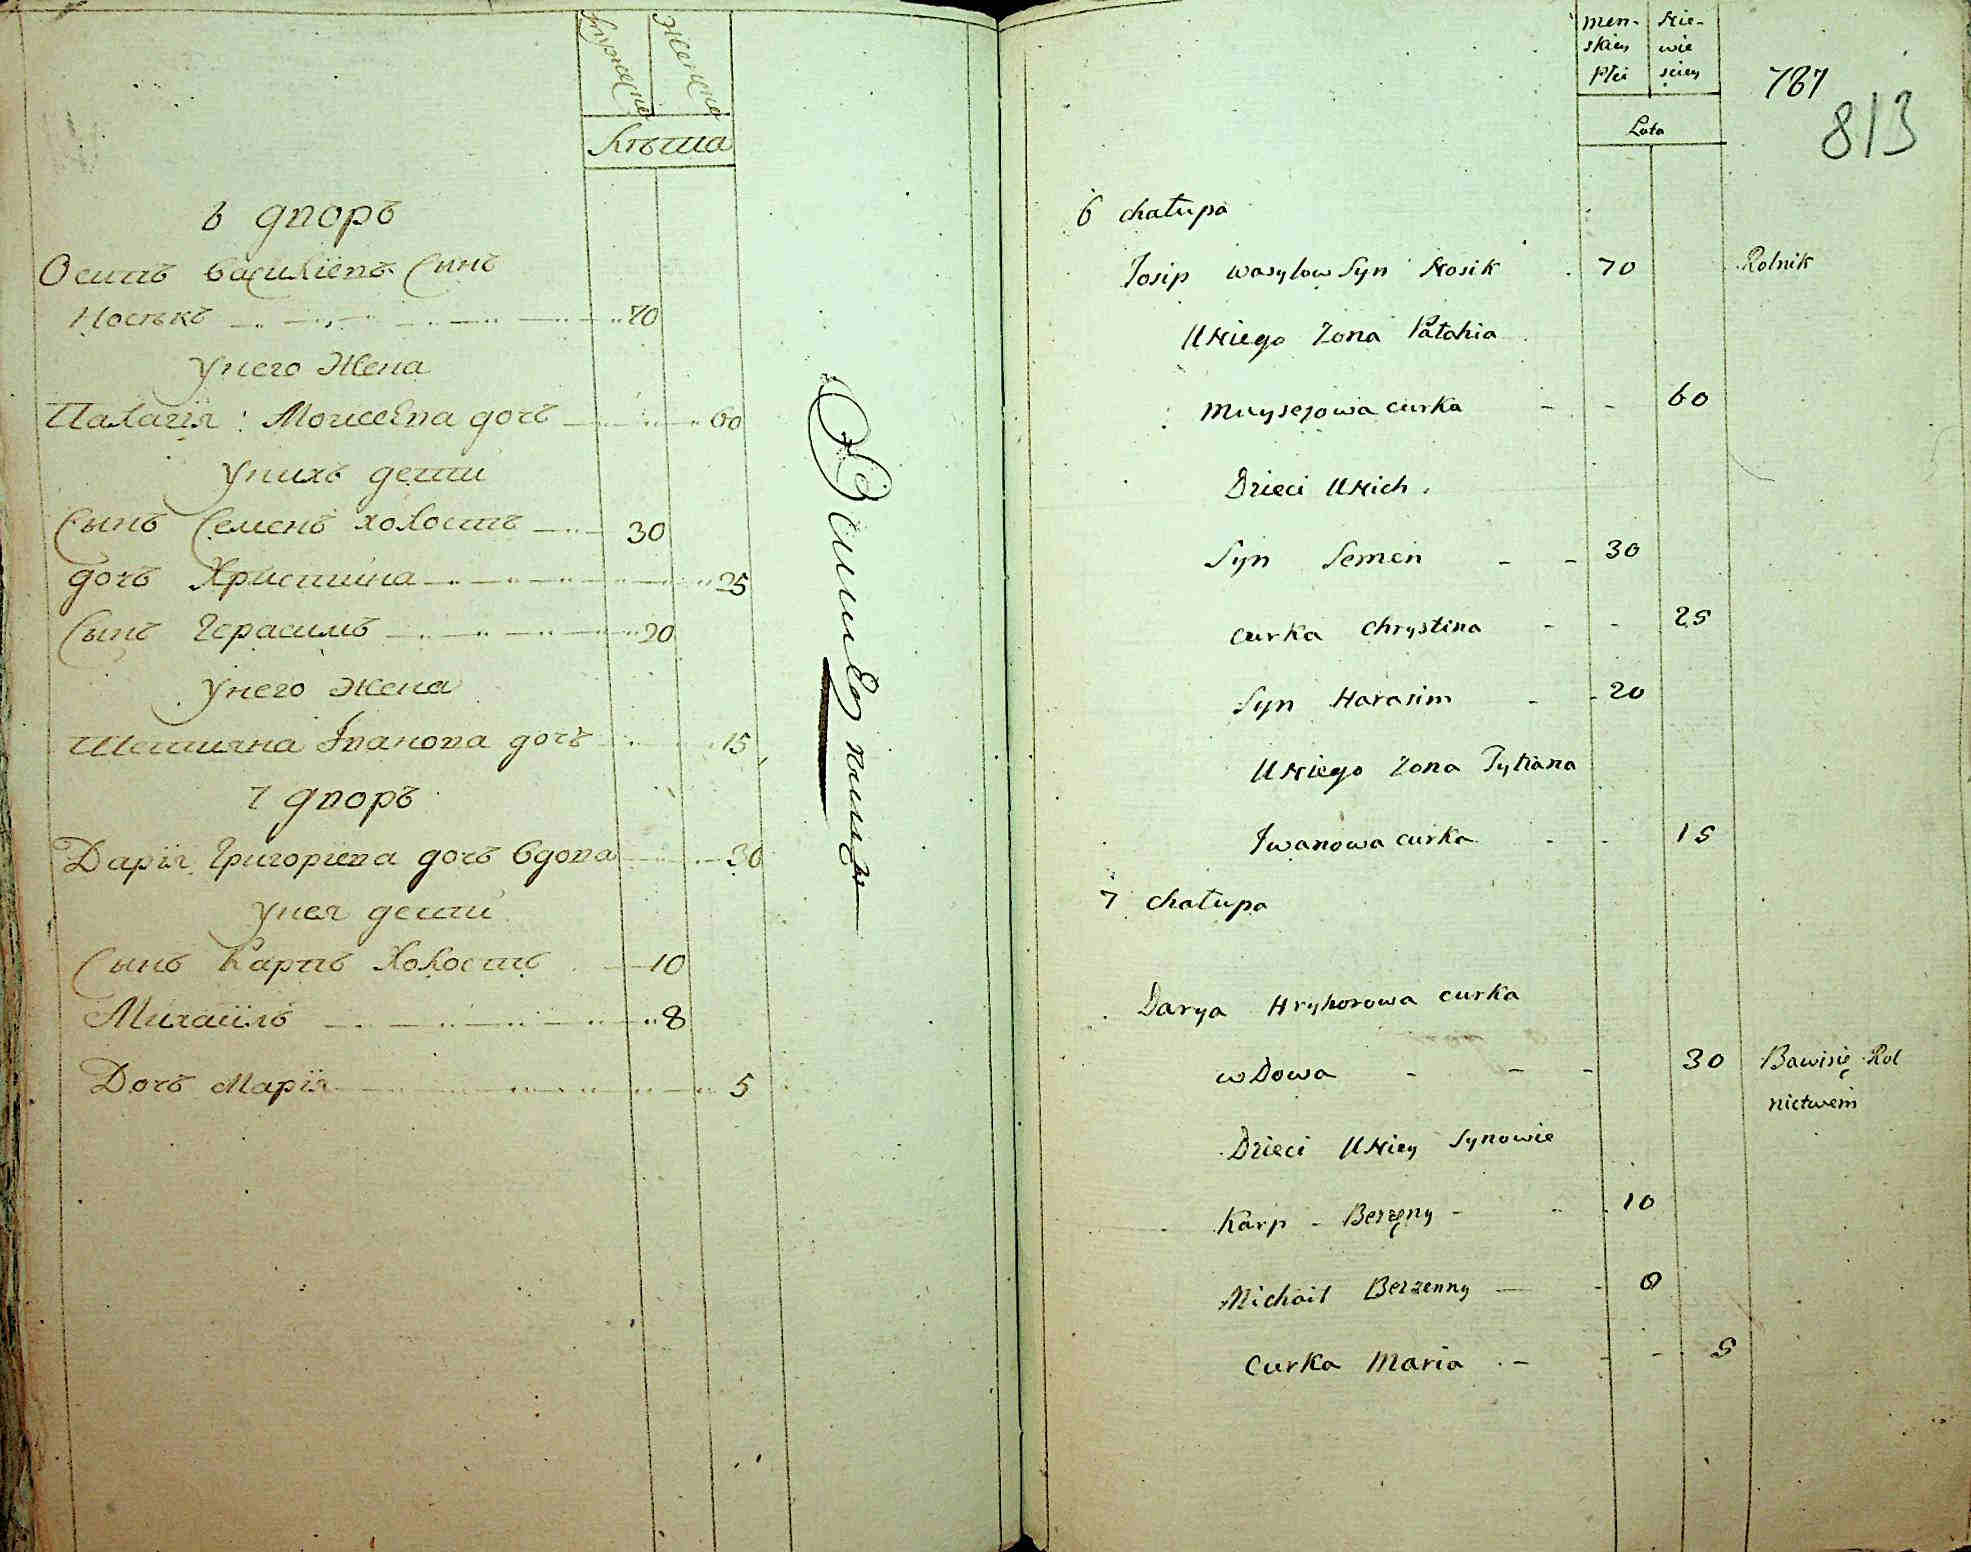 Мужескъ Женска
Лѣта
6 дворъ
Осипъ Василіевъ Сынъ
Носикъ 70
Унего Жена
Палагія Моисеева дочь 60
Унихъ дети
Сынъ Семенъ холостъ 30
дочь Христина 25
Сынъ Герасимъ 20
Унего Жена
Тетияна Іванова дочь 15
7 дворъ
Дарія Григориева дочь вдова 30
Унея дети
Сынъ Карпъ Холостъ 10
Михаилъ 8
Дочь Марія 5
men- Nie-
skiey wie
Płci sciey
Lata
787
813
6 chałupa
Josip Wasylow Syn Nosik 70 Rolnik
U Niego Zona Pałahia
Muysejowa curka 60
Dzieci U Nich
Syn Semen 30
curka Chrystina 25
Syn Harasim 20
U Niego Zona Tytiana
Iwanowa curka 15
7 chałupa
Darya Hryhorowa curka
wdowa 30 Bawi się Rol
nictwem
Dzieci U Niey Synowie
Karp Bezżęny 10
Michail Bezzenny 8
Curka Maria 5